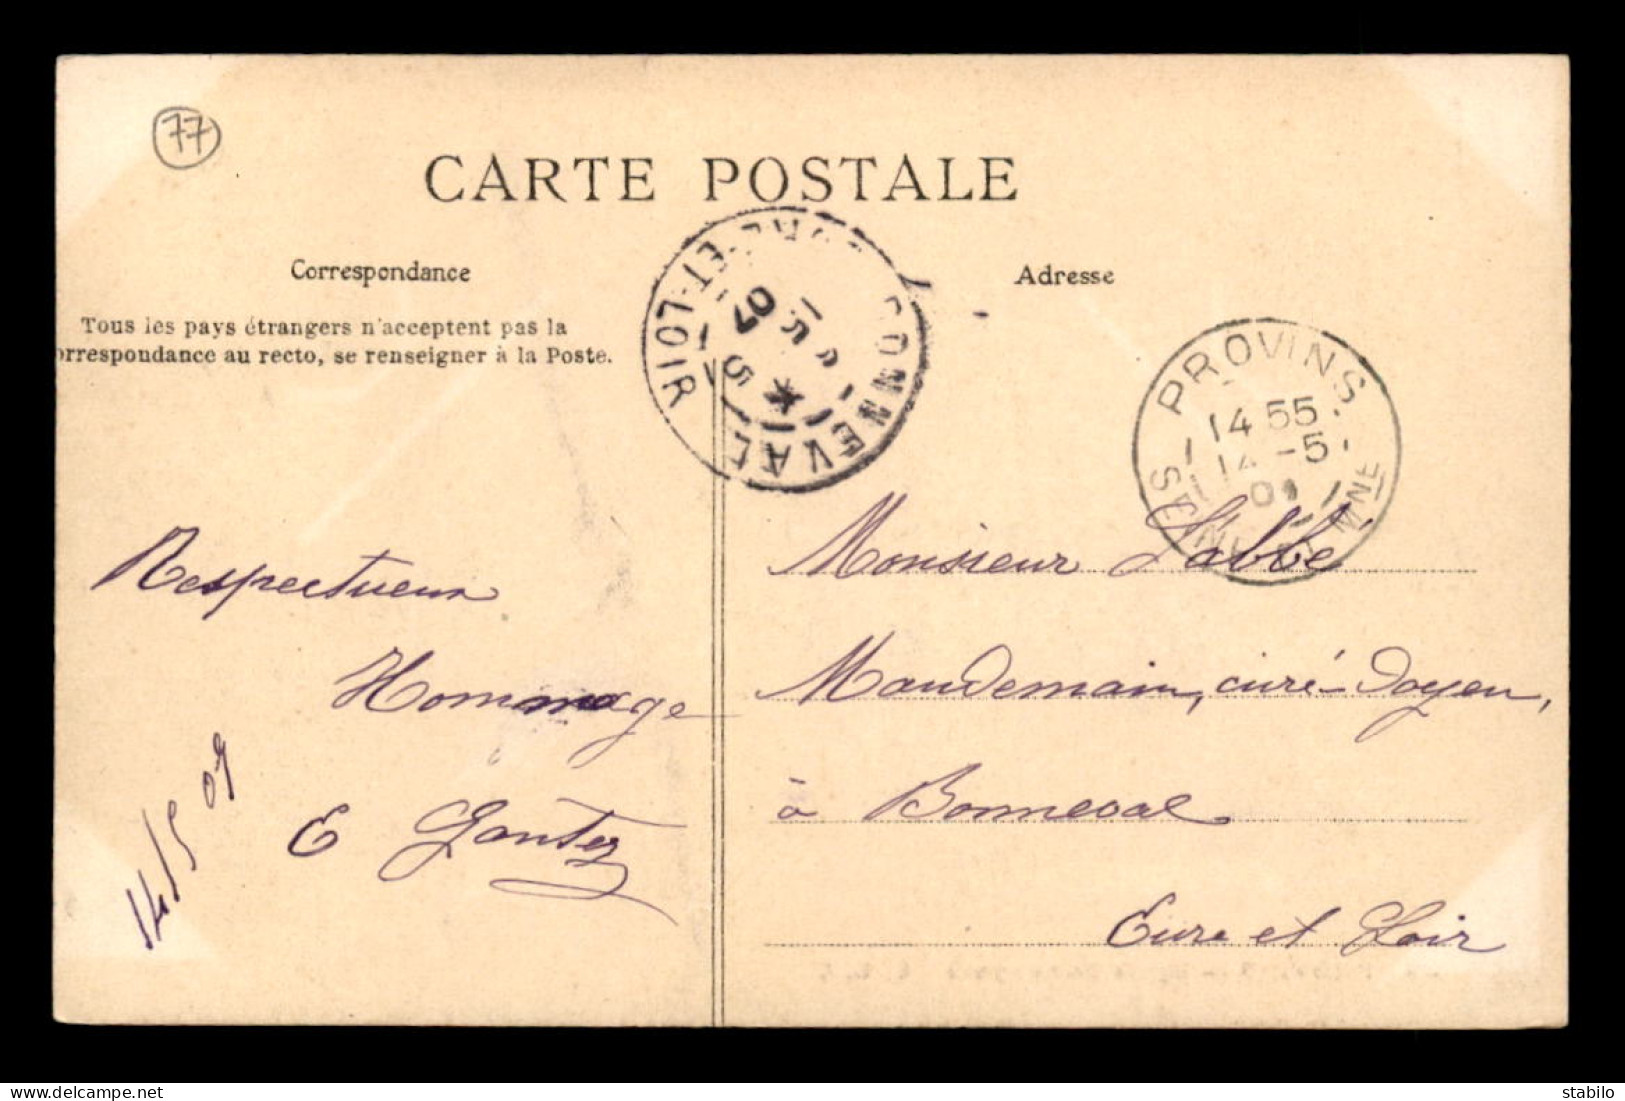 77
CARTE POSTALE
Correspondance
Adresse
Tous les pays étrangers n'acceptent pas la
orrespondance au recto, se renseigner à la Poste.
BONNEVAL
EURE-ET-LOIR
15 - 5
07
PROVINS
14 55
14 -5
SEINE ET MNE
Respectueux
Hommage
E Gantez
14/5 07
Monsieur L'abbé
Maudemain, curé-doyen,
à Bonneval
Eure et Loir
delcampe.net
stabilo